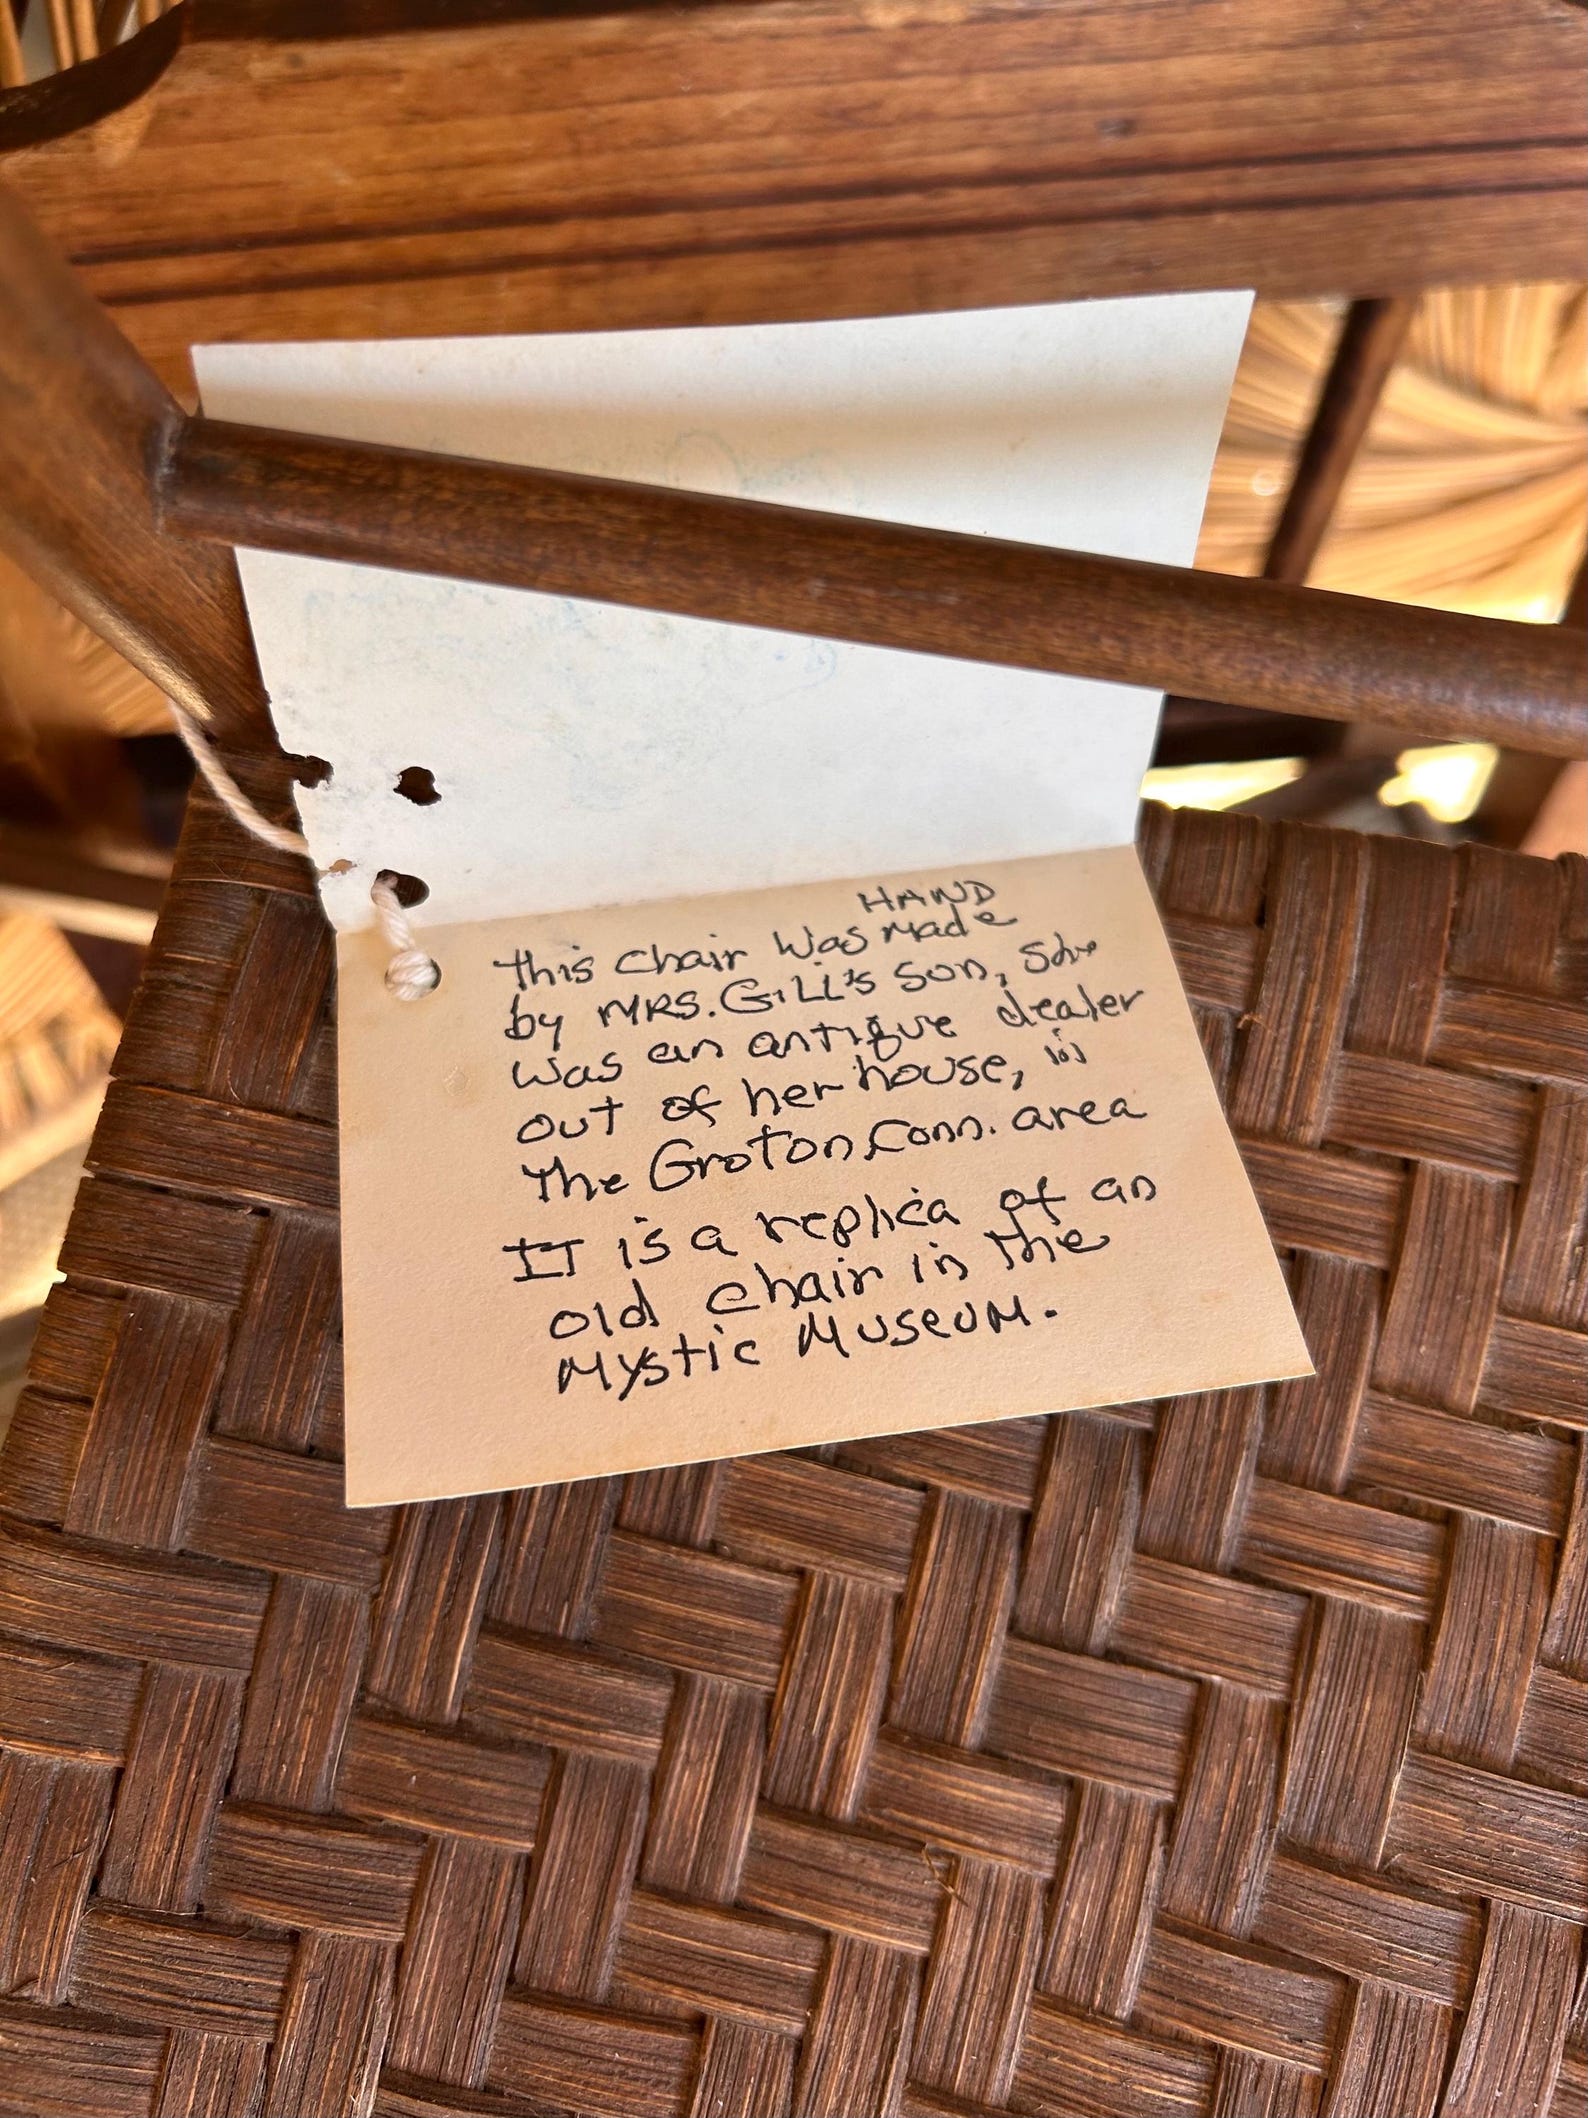 HAND
This chair was made
by MRS. GILL's son, she
was an antique dealer
out of her house, in
The Groton, Conn. area
IT is a replica of an
old chair in the
Mystic Museum.